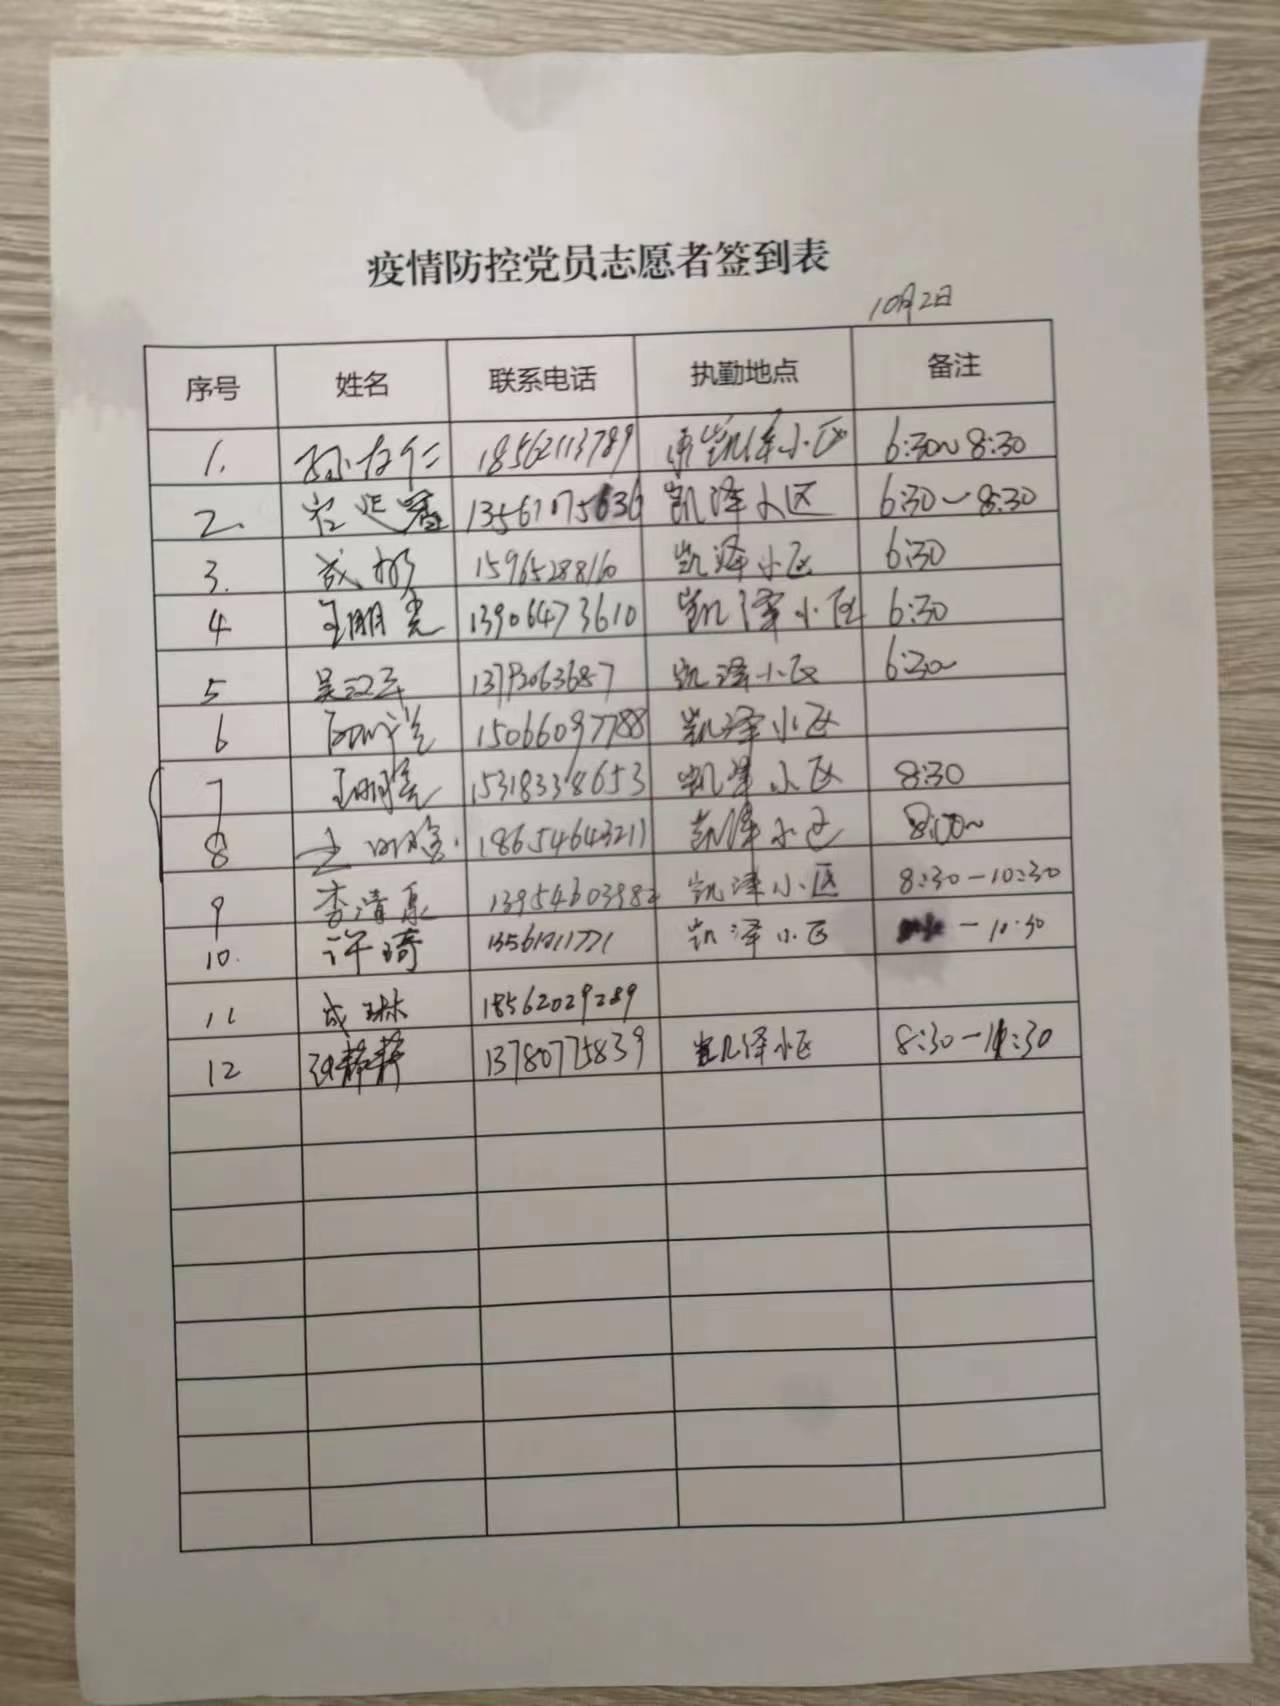 疫情防控党员志愿者签到表
10月2日
序号 姓名 联系电话 执勤地点 备注
1. 孙友仁 18562113789 凯泽小区 6:30~8:30
2. 13561075636 凯泽小区 6:30~8:30
3. 成彬 15965288160 凯泽小区 6:30
4 王朋光 13906473610 凯泽小区 6:30
5 吴江平 13793063687 凯泽小区 6:30~
6 15066097788 凯泽小区
7 15318338653 凯泽小区 8:30
8 18654643211 凯泽小区 8:00~
9 李清泉 13954603982 凯泽小区 8:30-10:30
10. 许琦 凯泽小区 -10:30
11 成琳 18562029289
12 张静静 13780775839 凯泽小区 8:30-